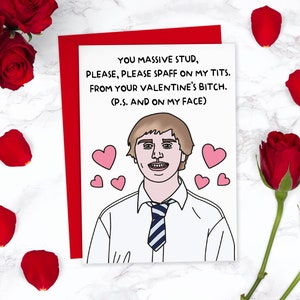 YOU MASSIVE STUD,
PLEASE, PLEASE SPAFF ON MY TITS.
FROM YOUR VALENTINE'S BITCH.
(P.S. AND ON MY FACE)